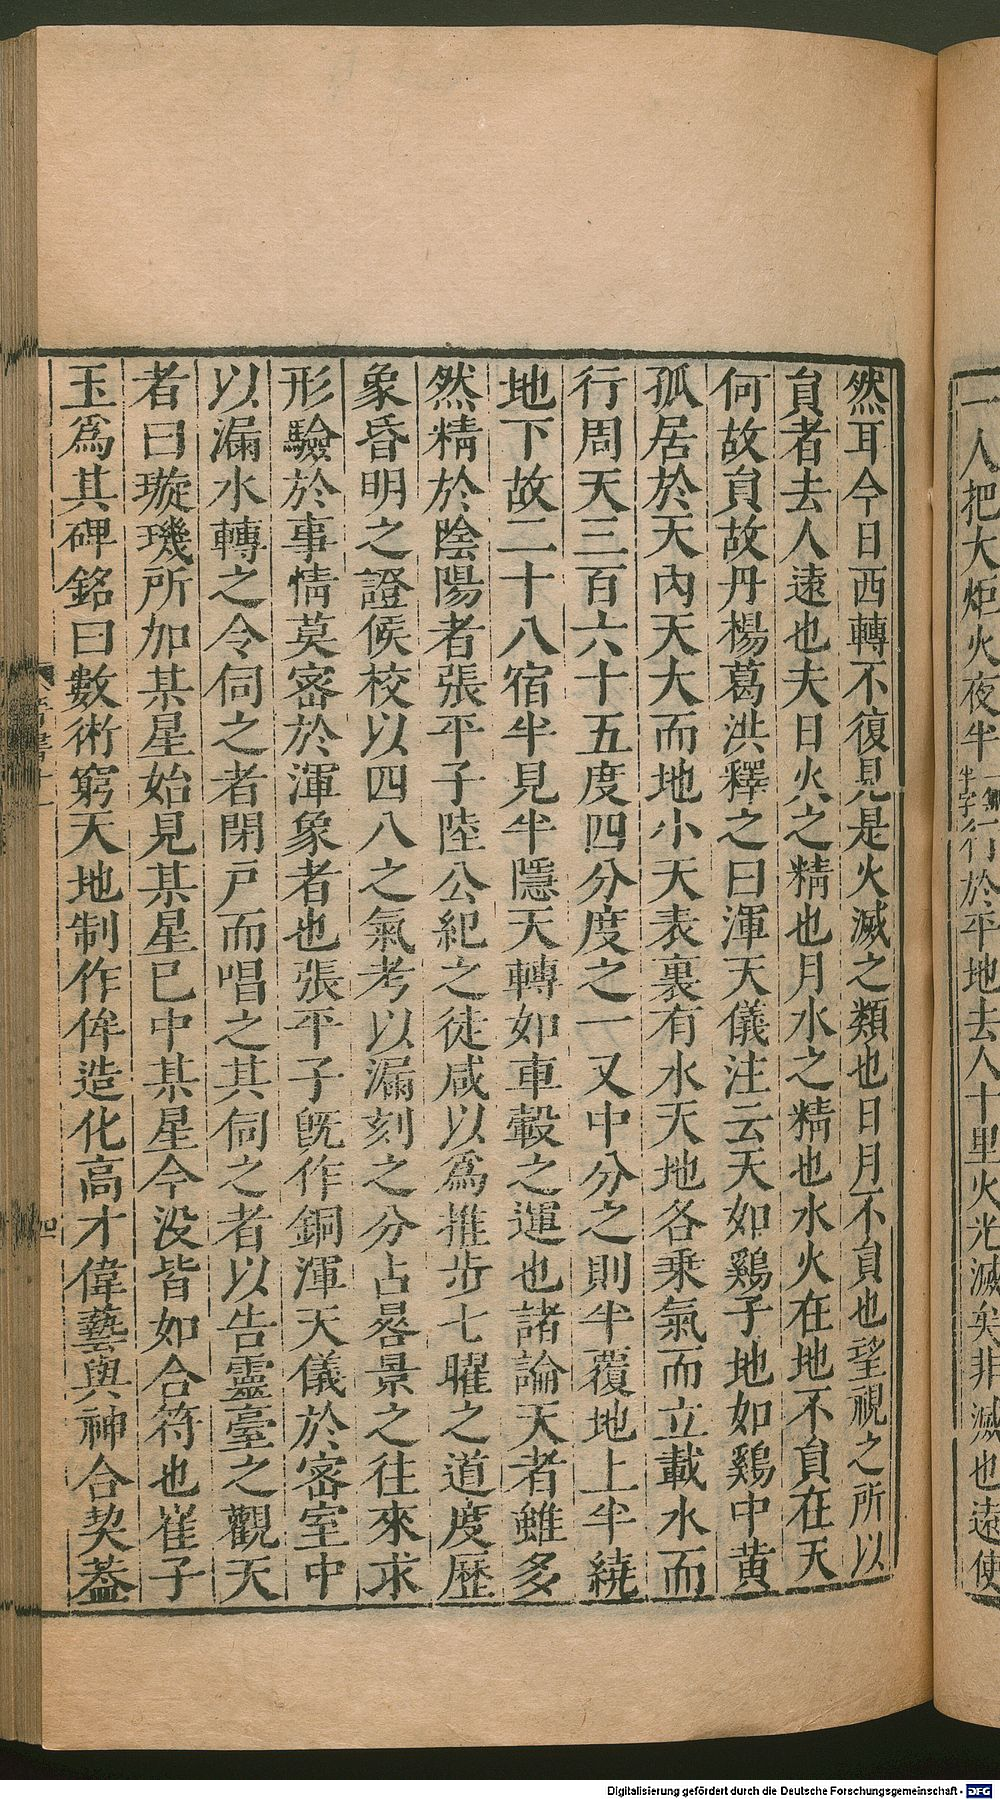 一人把大炬火夜半行於平地去人十里火光滅矣非滅也遠使
然耳今日西轉不復見是火滅之類也日月不員也望視之所以
員者去人遠也夫日火之精也月水之精也水火在地不員在天
何故員故丹楊葛洪釋之曰渾天儀注云天如鷄子地如鷄中黃
孤居於天內天大而地小天表裏有水天地各乘氣而立載水而
行周天三百六十五度四分度之一又中分之則半覆地上半繞
地下故二十八宿半見半隱天轉如車轂之運也諸論天者雖多
然精於陰陽者張平子陸公紀之徒咸以爲推步七曜之道度歷
象昏明之證候校以四八之氣考以漏刻之分占晷景之往來求
形驗於事情莫密於渾象者也張平子旣作銅渾天儀於密室中
以漏水轉之令伺之者閉戸而唱之其伺之者以告靈臺之觀天
者曰璇璣所加某星始見某星已中某星今没皆如合符也崔子
玉爲其碑銘曰數術窮天地制作侔造化高才偉藝與神合契蓋
Digitalisierung gefördert durch die Deutsche Forschungsgemeinschaft - DFG